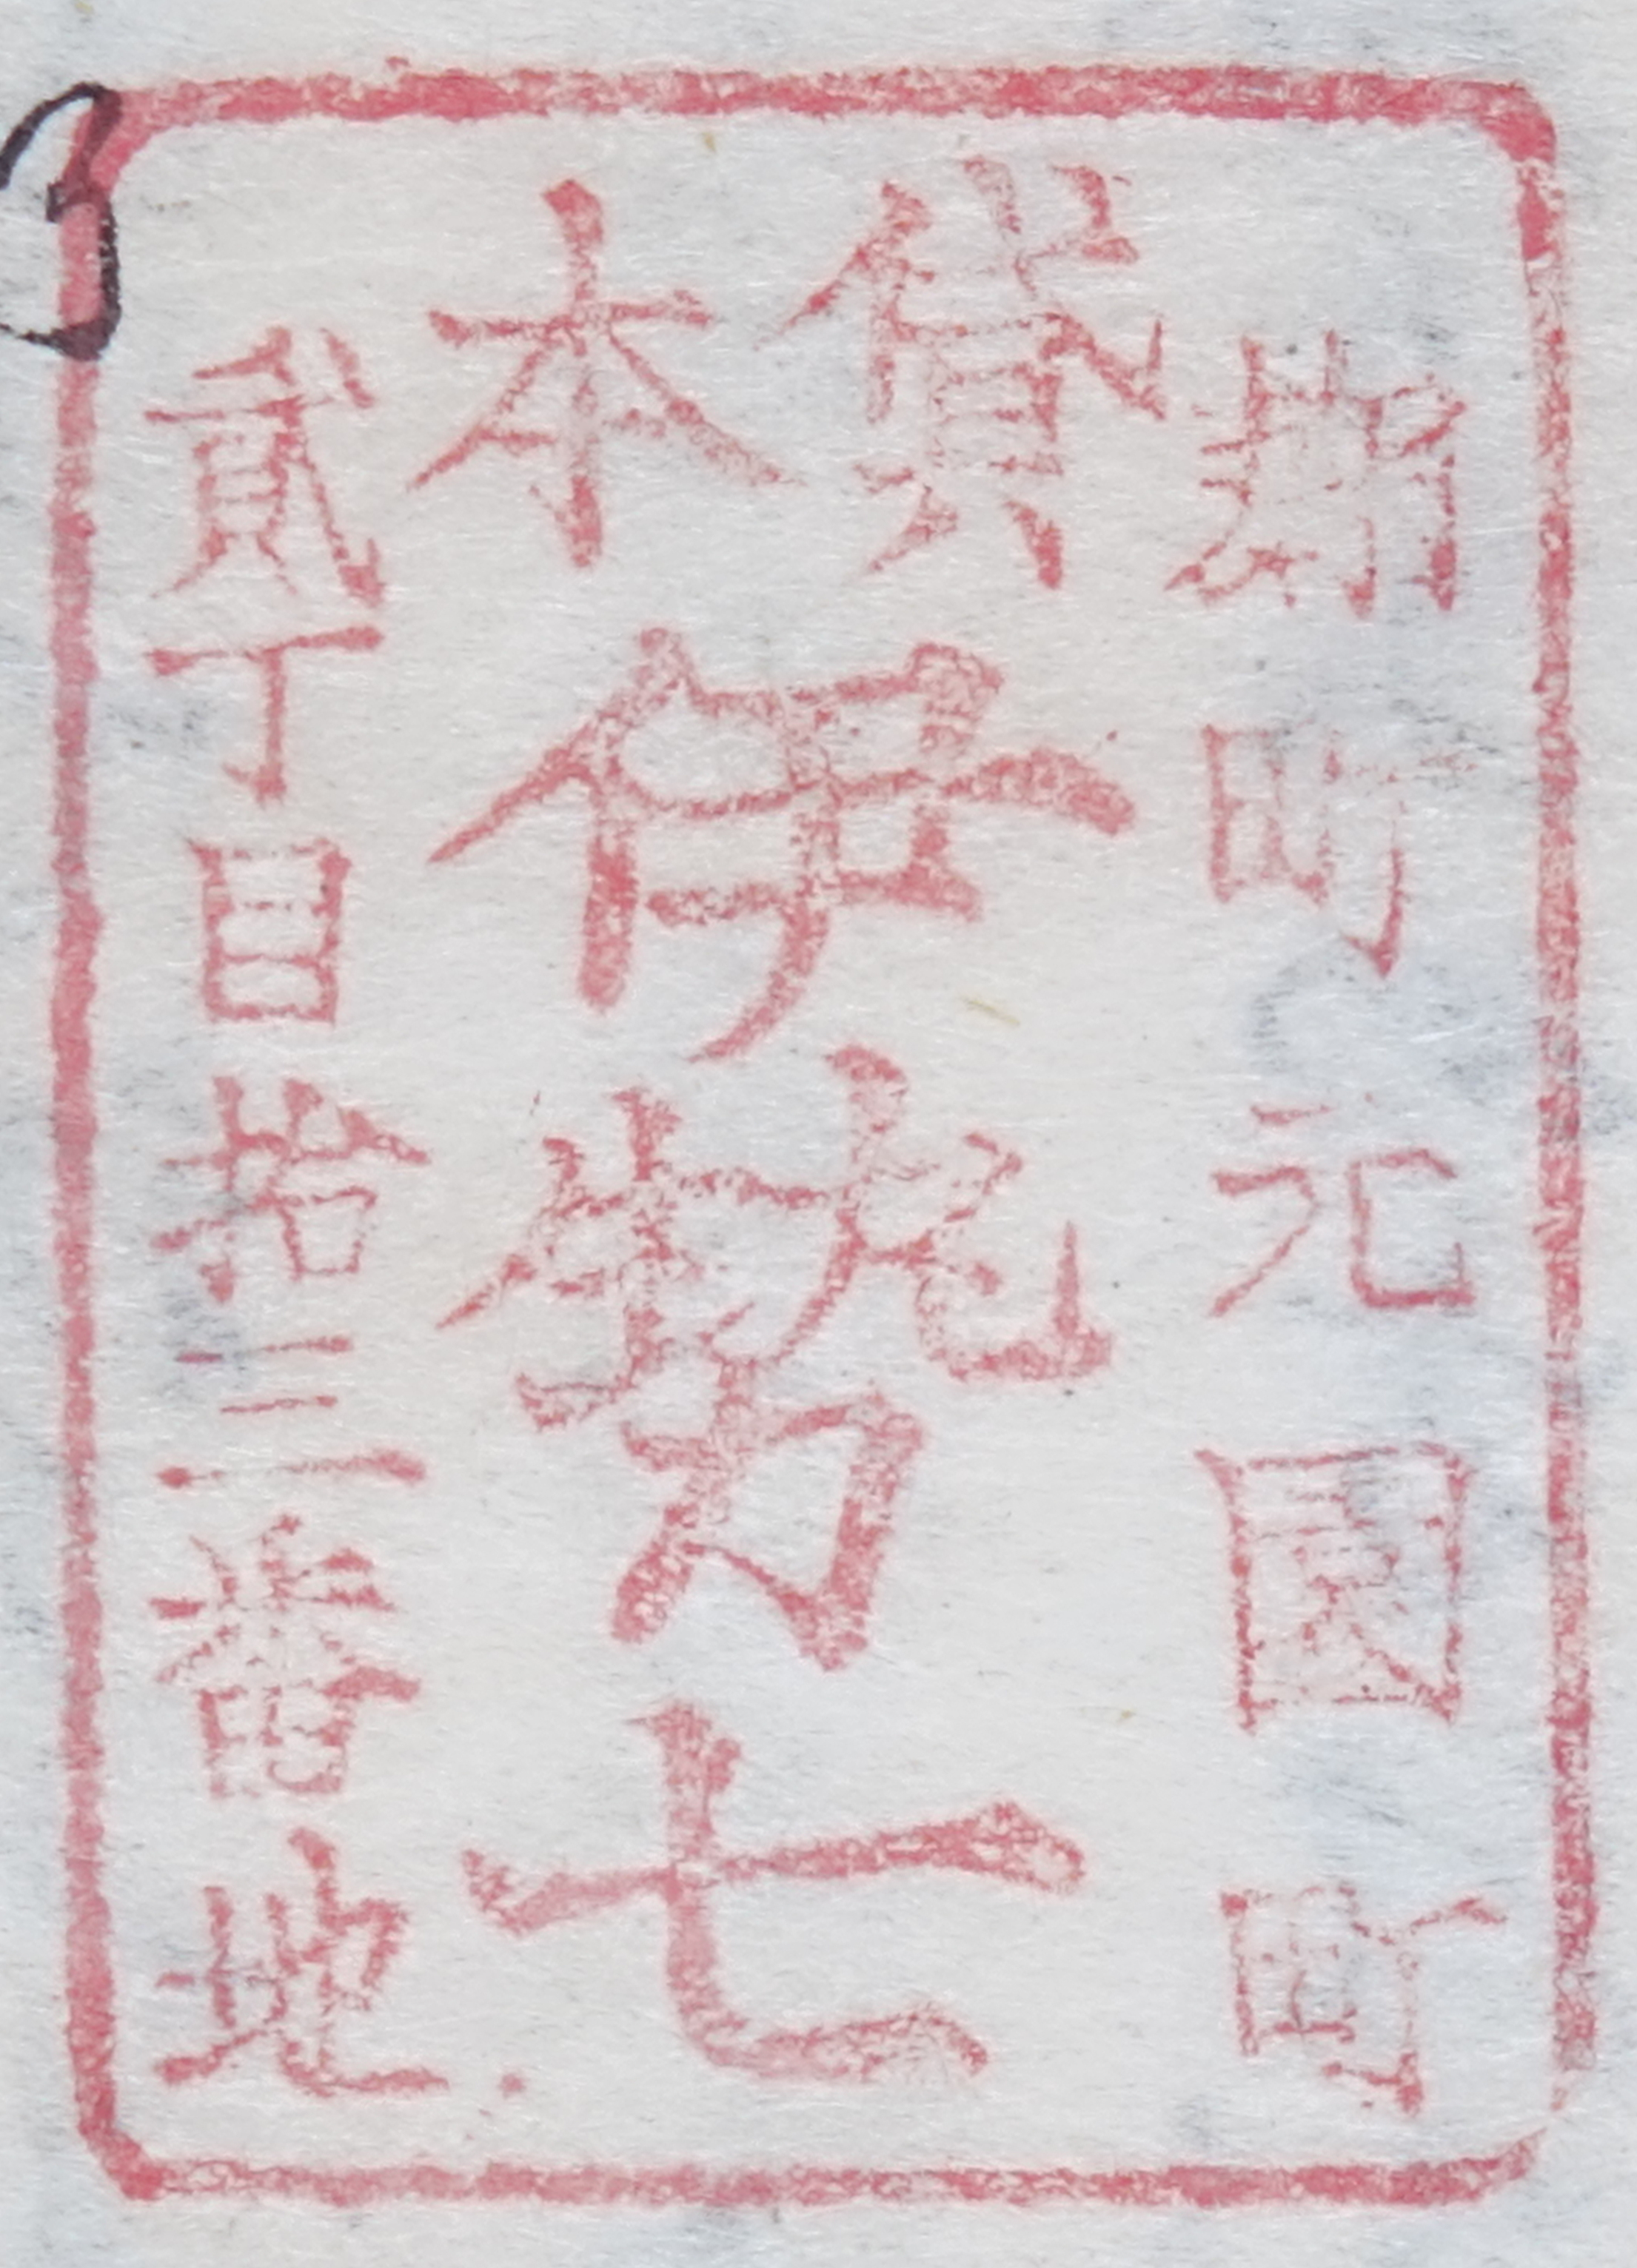 麹町元園町
貸本
伊勢七
貳丁目拾三番地